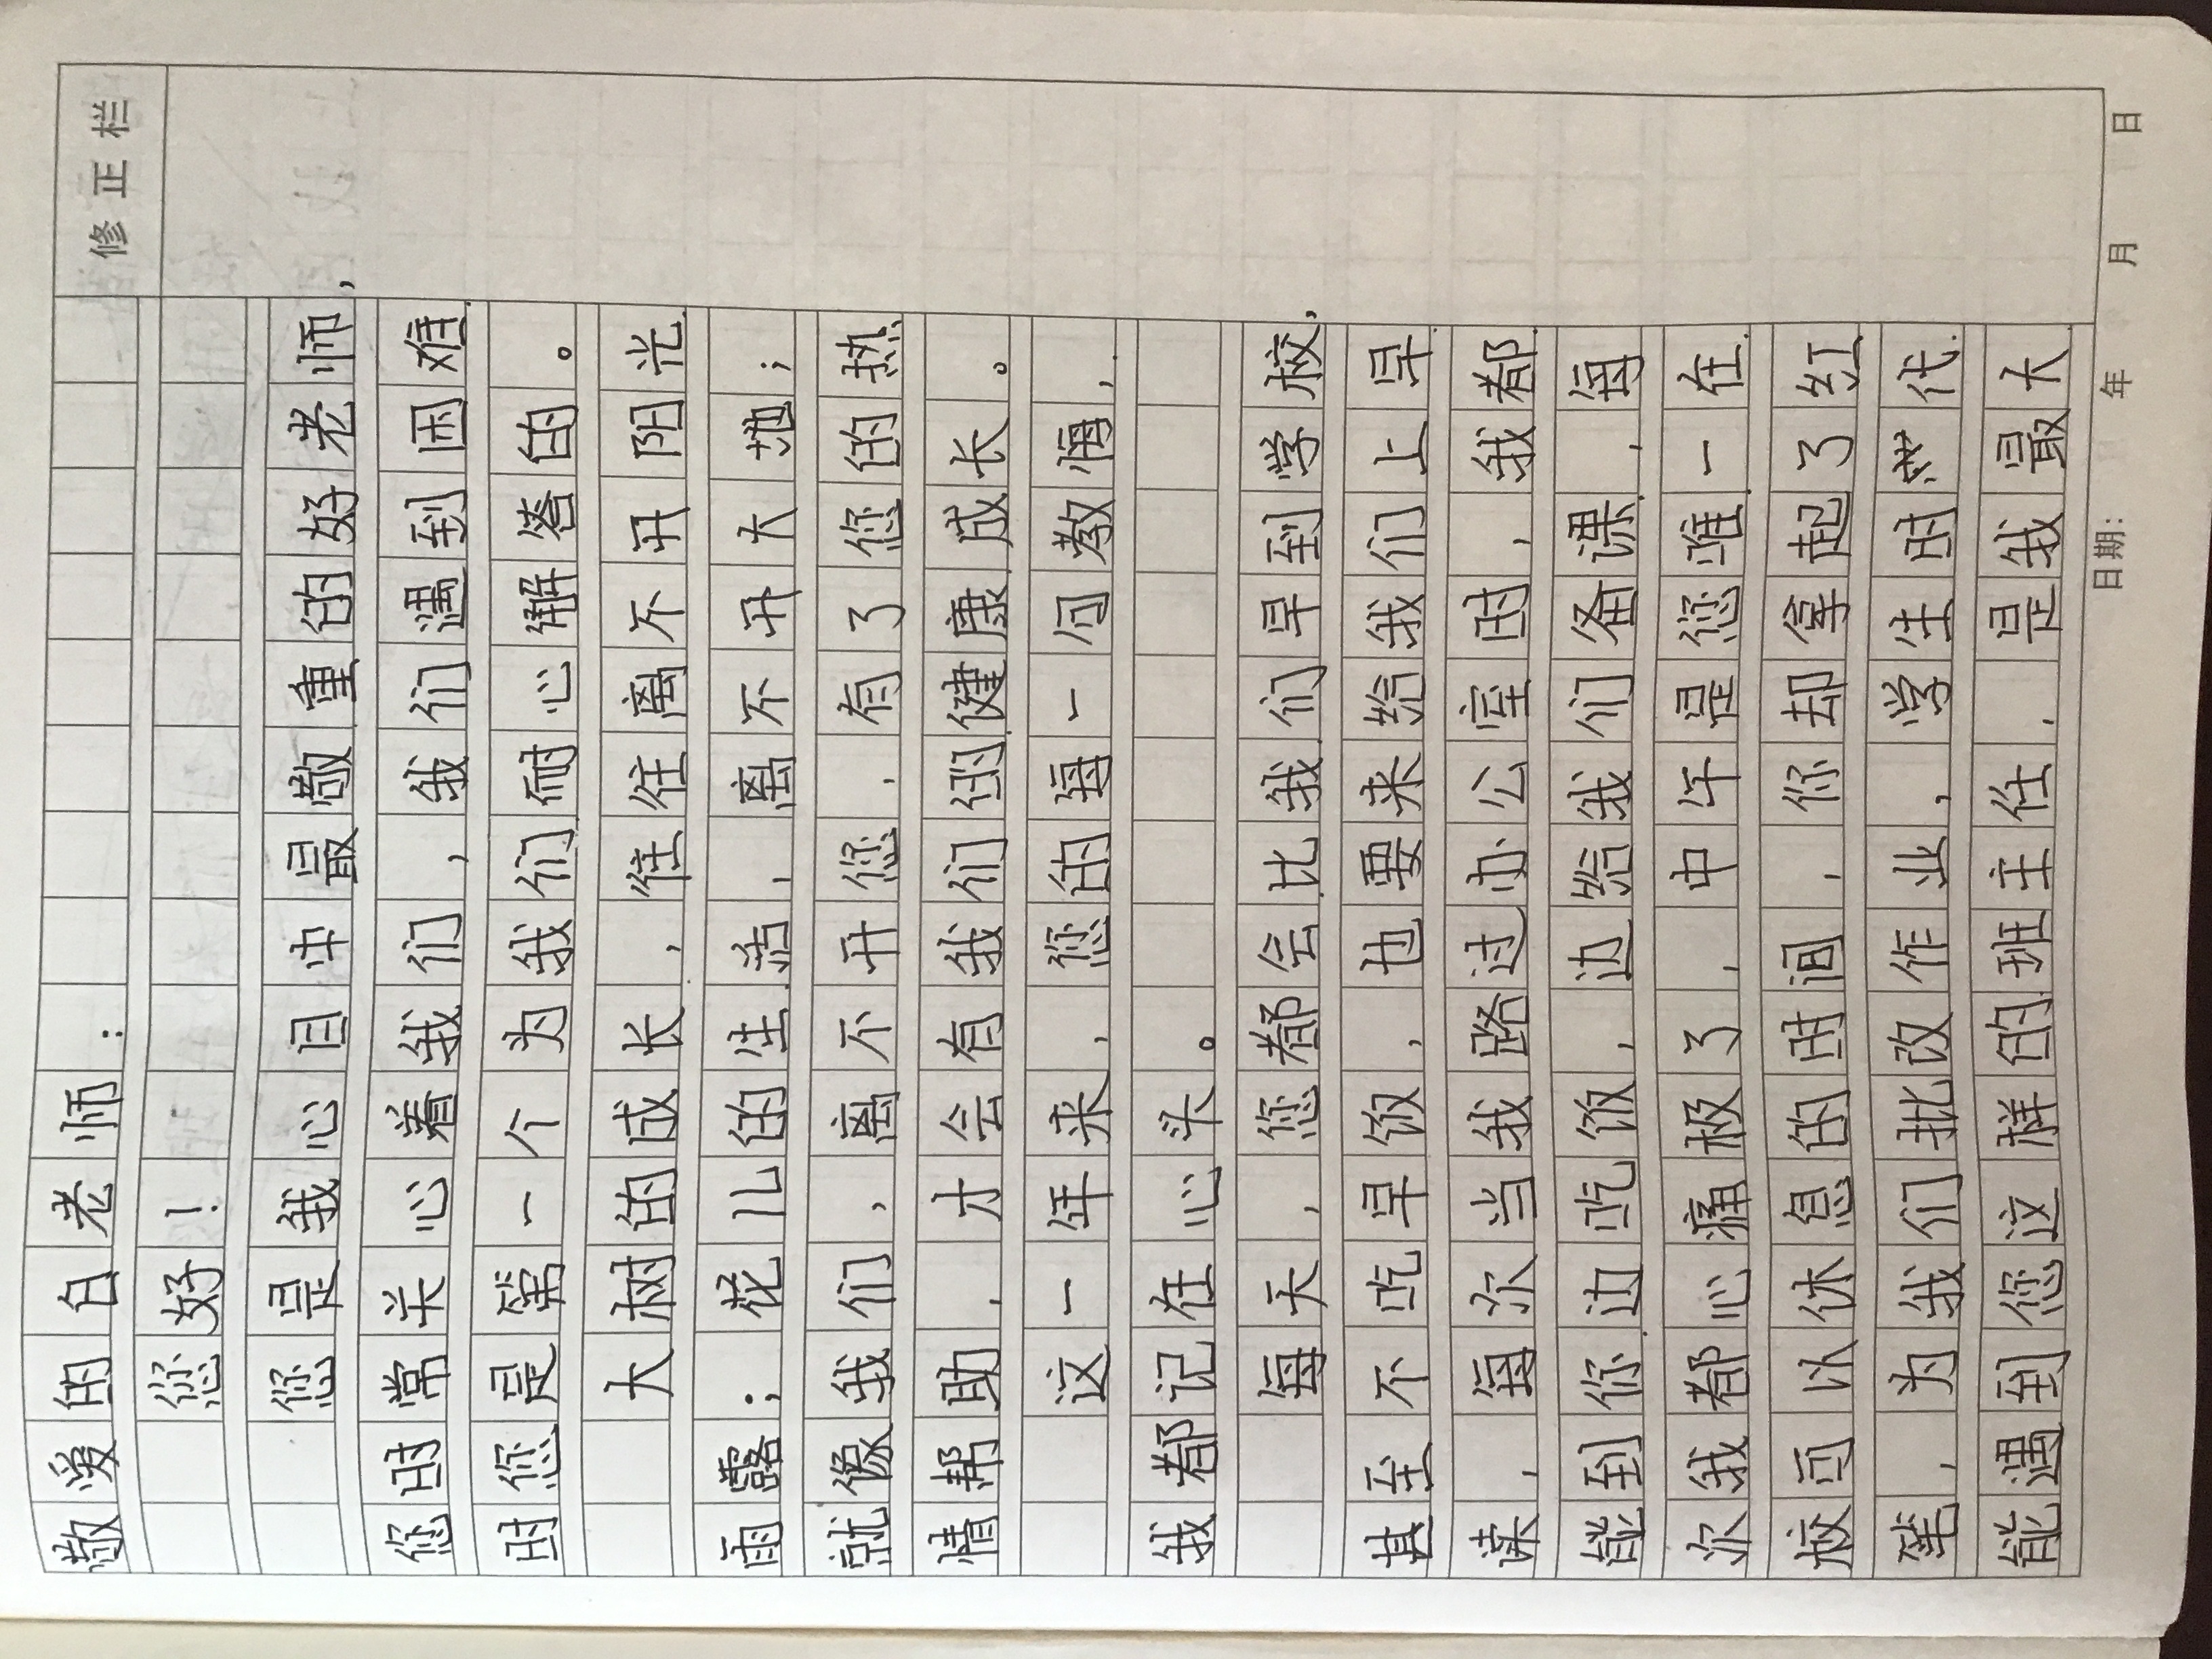 修正栏
敬爱的白老师：
您好！
您是我心目中最敬重的好老师，
您时常关心着我们，我们遇到困难
时您是第一个为我们耐心解答的。
大树的成长，往往离不开阳光
雨露；花儿的生活，离不开大地；
就像我们，离不开您，有了您的热
情帮助，才会有我们的健康成长。
这一年来，您的每一句教悔，
我都记在心头。
每天，您都会比我们早到学校，
甚至不吃早饭，也要来给我们上早
读，每次当我路过办公室时，我都
能到你边吃饭，边给我们备课，每
次我都心痛极了，中午是您唯一在
校可以休息的时间，你却拿起了红
笔，为我们批改作业，学生时代
能遇到您这样的班主任，是我最大
日期: 年 月 日